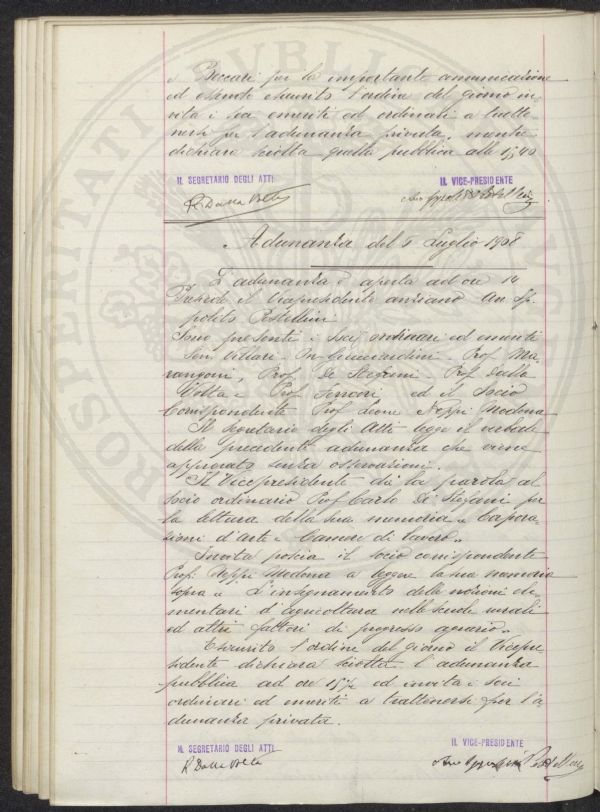 Beccari per la importante comunicazione
ed essendo esaurito l'ordine del giorno in-
vita i soci emeriti ed ordinari a tratte-
nersi per l'adunanza privata, mentre
dichiara sciolta quella pubblica alle 15,40
IL SEGRETARIO DEGLI ATTI
IL VICE-PRESIDENTE
R. Dalla Volta
Adunanza del 5 Luglio 1908
L'adunanza è aperta ad ore 14
Presiede il Vicepresidente anziano Avv Ip-
polito Pestellini
Sono presenti i Soci ordinari ed emeriti
Sen. Villari - On. Guicciardini - Prof. Ma-
rangoni, Prof. De Stefani - Prof. Dalla
Volta - Prof. Ferrari ed il Socio
Corrispondente Prof. Leone Neppi Modona
Il Segretario degli Atti legge il verbale
della precedente adunanza che viene
approvato senza osservazioni.
Il Vicepresidente dà la parola al
socio ordinario Prof Carlo De Stefani per
la lettura della sua memoria „ Corpora-
zioni d'Arte e Camere di lavoro „
Invita poscia il socio corrispondente
Prof. Neppi Modona a leggere la sua memoria
sopra „ L'insegnamento delle nozioni ele-
mentari d'agricoltura nelle scuole rurali
ed altri fattori di progresso agrario „
Esaurito l'ordine del giorno il Vicepre-
sidente dichiara sciolta l'adunanza
pubblica ad ore 15½ ed invita i soci
ordinari ed emeriti a trattenersi per l'a-
dunanza privata.
IL SEGRETARIO DEGLI ATTI
IL VICE-PRESIDENTE
R Dalla Volta